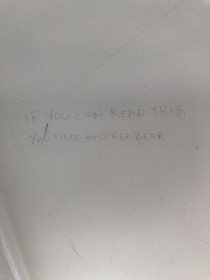 IF YOU CAN READ THIS,
YOU NEED ANOTHER BEER